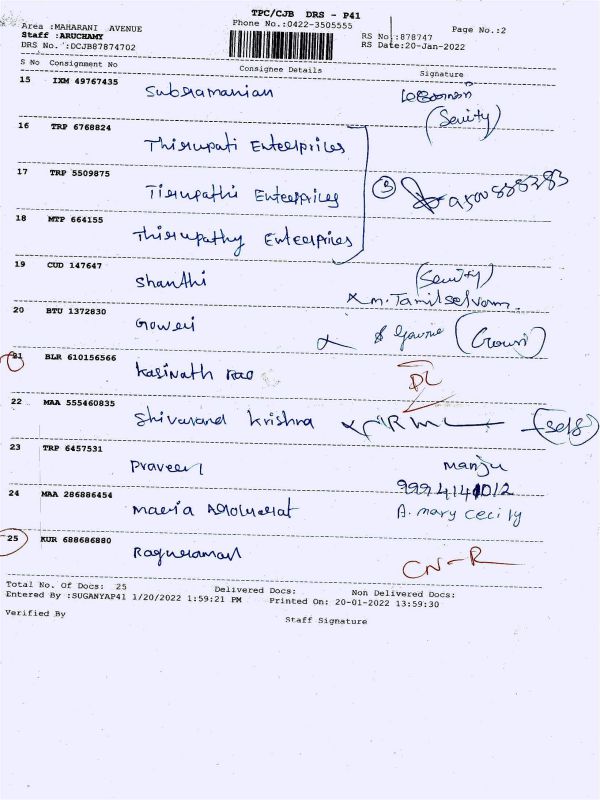 TPC/CJB DRS - P41
Area :MAHARANI AVENUE
Phone No.:0422-3505555
Page No.:2
Staff :ARUCHAMY
RS No :878747
DRS No. :DCJB87874702
RS Date:20-Jan-2022
S No Consignment No Consignee Details Signature
15 IXM 49767435 Subramanian
(Seurity)
16 TRP 6768824 Thirupati Enterprices
17 TRP 5509875 Tirupathi Enterprices
18 MTP 664155 Thirupathy Enterprices
(3)
19 CUD 147647 Shanthi (Seurity)
m. Tamilselvam
20 BTU 1372830 Goweri
21 BLR 610156566 Kasinath Rao DL
22 MAA 555460835 Shivanand Krishna (self)
23 TRP 6457531 Praveen Manju
9994141012
24 MAA 286886454 Maria A. mary cecily
25 KUR 688686880 Raguraman CN-R
Total No. Of Docs: 25 Delivered Docs: Non Delivered Docs:
Entered By :SUGANYAP41 1/20/2022 1:59:21 PM Printed On: 20-01-2022 13:59:30
Verified By Staff Signature